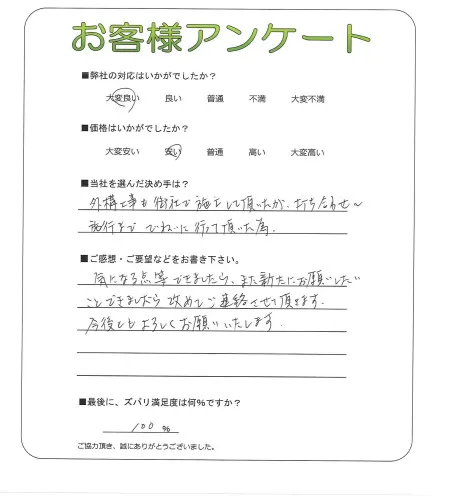 お客様アンケート
■弊社の対応はいかがでしたか?
大変良い 良い 普通 不満 大変不満
■価格はいかがでしたか?
大変安い 安い 普通 高い 大変高い
■当社を選んだ決め手は?
外構工事も御社で施工して頂いたが、打ち合わせ~
施行まで ていねいに行って頂いた為。
■ご感想・ご要望などをお書き下さい。
気になる点等できましたら、また新たにお願いしたい
ことできましたら改めてご連絡させて頂きます。
今後ともよろしくお願いいたします。
■最後に、ズバリ満足度は何%ですか?
100 %
ご協力頂き、誠にありがとうございました。